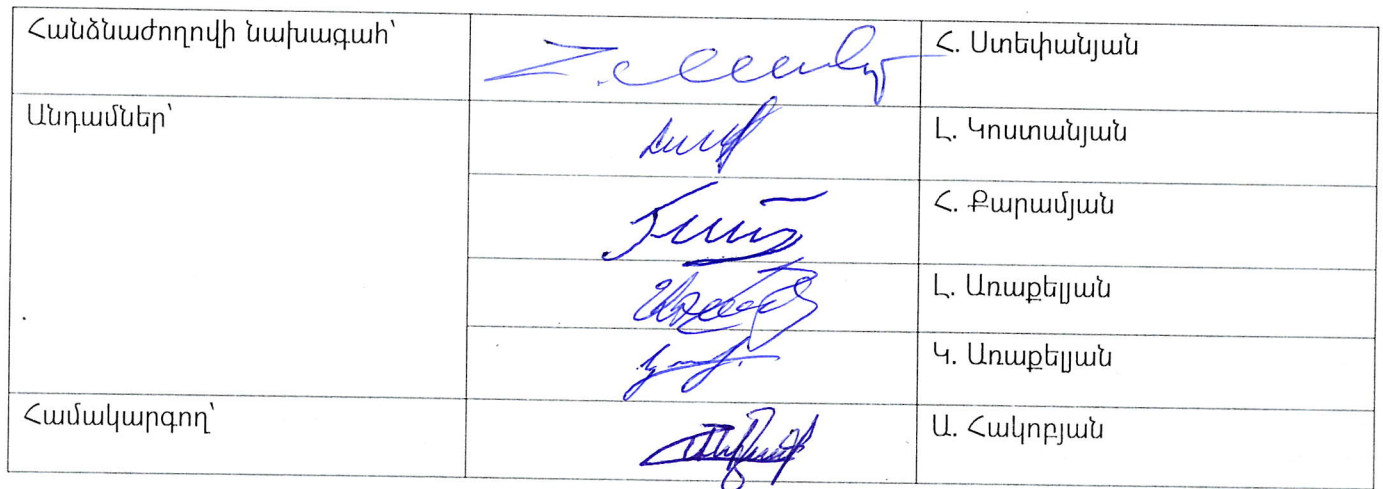 Հանձնաժողովի նախագահ՝ Հ. Ստեփանյան
Անդամներ՝ Լ. Կոստանյան
Հ. Քարամյան
Լ. Առաքելյան
Կ. Առաքելյան
Համակարգող՝ Ա. Հակոբյան